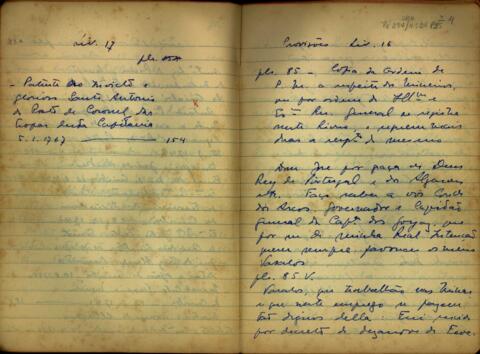 Liv. 17
fls.
- Patente ao invicto e
glorioso Santo Antonio
do Posto de Coronel das
tropas desta Capitania
5.1.1767 ——— 154
Provisões Liv. 16
fls. 85 - Copia da Ordem de
P. M. a respeito de Mineiros,
ou por ordem do Ill.mo e
Ex.mo Gen. General se registra
neste Livro, e
duas a respto do mesmo
Dom Jose por graça de Deus
Rey de Portugal e dos Algarves
etc. Faço saber a vós Conde
dos Arcos, Governador e Capitão
general da Capt. dos Goyaz, que
por ser de minha Real Intenção
quem sempre favorecer os meus
Vassalos
fls. 85 V.
Vassalos, que trabalhão nas Minas
e que neste emprego se fazem
tão dignos della: Fui servido
por decreto de dezanove de Feve.